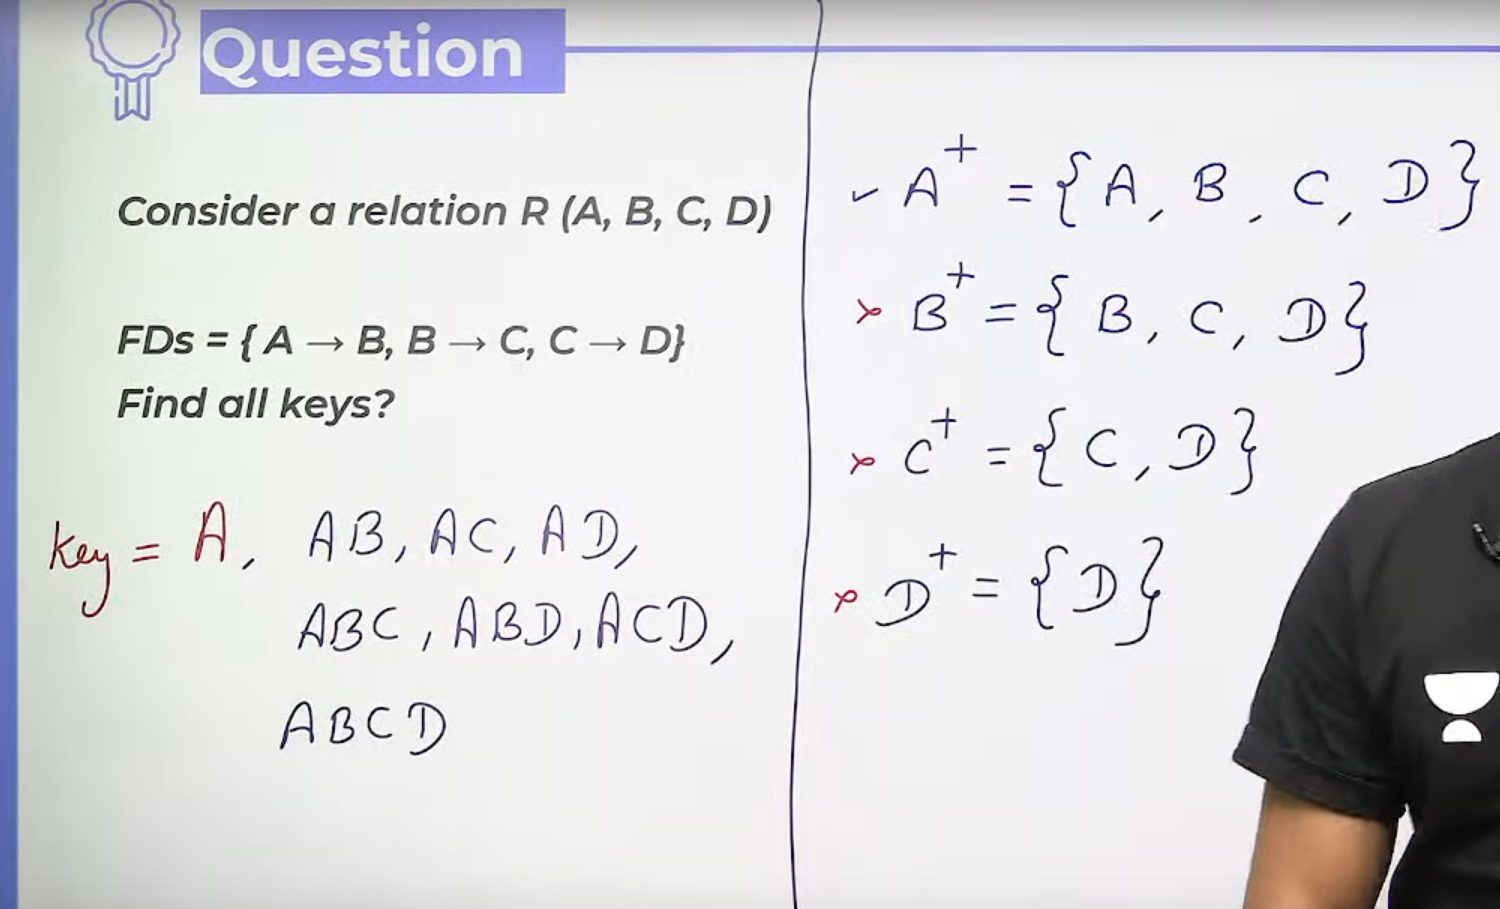 Question
Consider a relation R (A, B, C, D)
FDs = { A → B, B → C, C → D}
Find all keys?
key = A, AB, AC, AD,
ABC, ABD, ACD,
ABCD
✓ A⁺ = { A, B, C, D }
✗ B⁺ = { B, C, D }
✗ C⁺ = { C, D }
✗ D⁺ = { D }